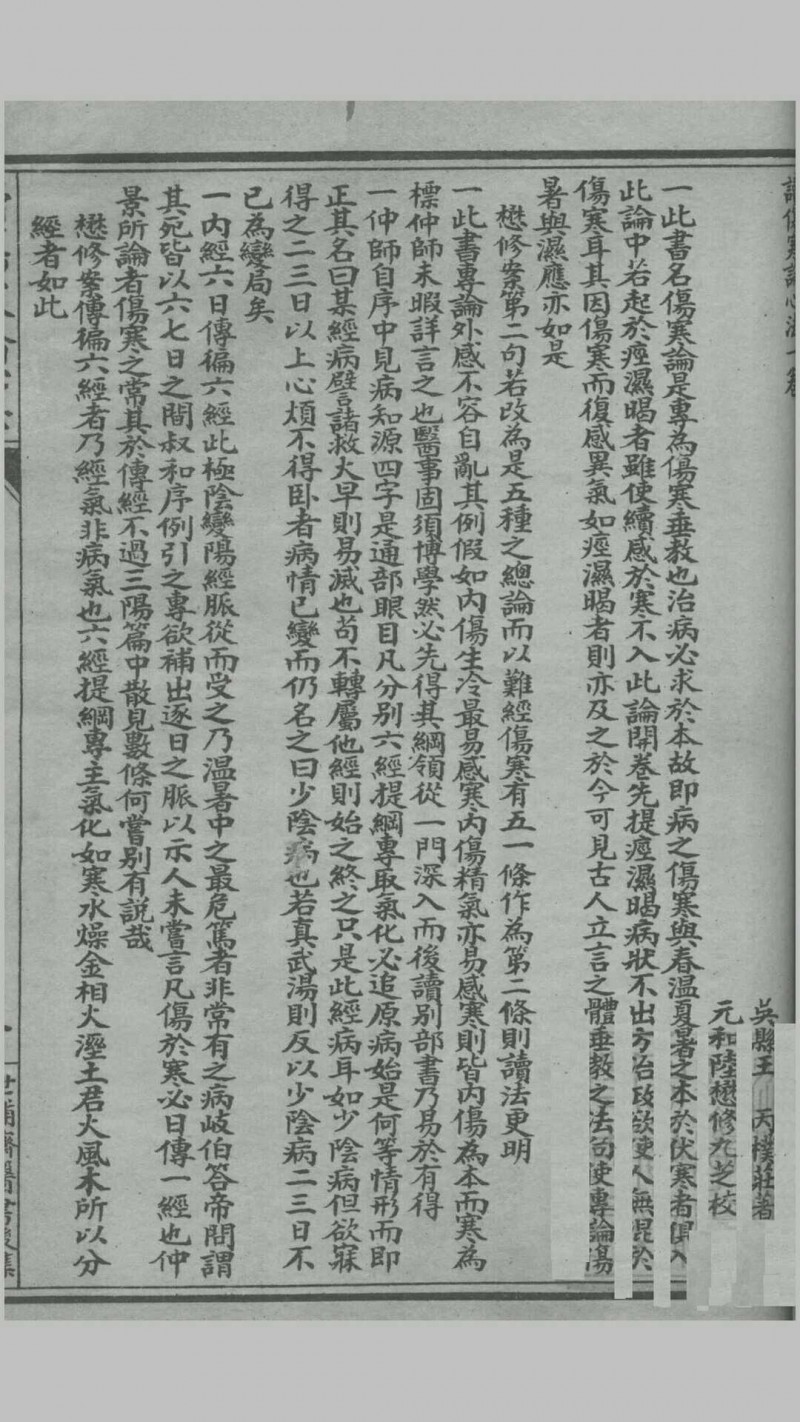 讀傷寒論心法一卷
吳縣王丙樸莊著
元和陸懋修九芝校
一此書名傷寒論是專為傷寒垂教也治病必求於本故即病之傷寒與春溫夏暑之本於伏寒者俱入
此論中若起於痙濕暍者雖使續感於寒不入此論開卷先提痙濕暍病狀不出方治政欲使人無混於
傷寒耳其因傷寒而復感異氣如痙濕暍者則亦及之於今可見古人立言之體垂教之法向使專論傷
暑與濕應亦如是
懋修案第二句若改為是五種之總論而以難經傷寒有五一條作為第二條則讀法更明
一此書專論外感不容自亂其例假如內傷生冷最易感寒內傷精氣亦易感寒則皆內傷為本而寒為
標仲師未暇詳言之也醫事固須博學然必先得其綱領從一門深入而後讀別部書乃易於有得
一仲師自序中見病知源四字是通部眼目凡分別六經提綱專取氣化必追原病始是何等情形而即
正其名曰某經病譬諸救火早則易滅也苟不轉屬他經則始之終之只是此經病耳如少陰病但欲寐
得之二三日以上心煩不得卧者病情已變而仍名之曰少陰病也若真武湯則反以少陰病二三日不
已為變局矣
一內經六日傳徧六經此極陰變陽經脈從而受之乃溫暑中之最危篤者非常有之病岐伯答帝問謂
其死皆以六七日之間叔和序例引之專欲補出逐日之脈以示人未嘗言凡傷於寒必日傳一經也仲
景所論者傷寒之常其於傳經不過三陽篇中散見數條何嘗别有說哉
懋修案傳徧六經者乃經氣非病氣也六經提綱專主氣化如寒水燥金相火溼土君火風木所以分
經者如此
一
世補齋醫書後集